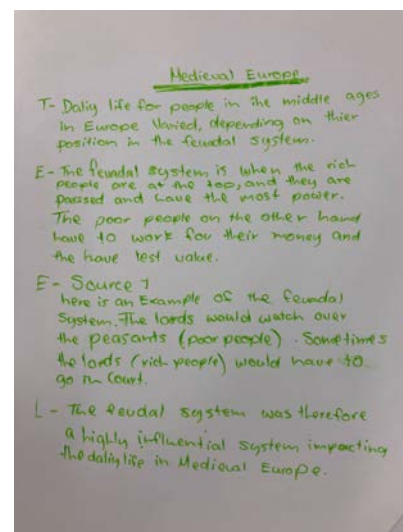 Medieval Europe
T- Daliy life for people in the middle ages
in Europe Varied, depending on thier
position in the feuadal system.
E- The feuadal system is when the rich
people are at the top, and they are
and have the most power.
The poor people on the other hand
have to work for their money and
the have lest value.
E- Source 1
here is an Example of the feuadal
System. The lords would watch over
the peasants (poor people). Sometimes
the lords (rich people) would have to
go Court.
L- The feudal system was therefore
a highly influential system impacting
the daliy life in Medieval Europe.